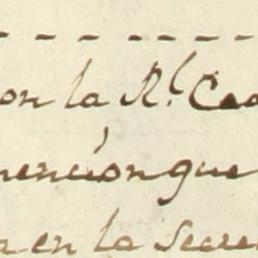 on la Rl. Ced
mencion que
en la Secre